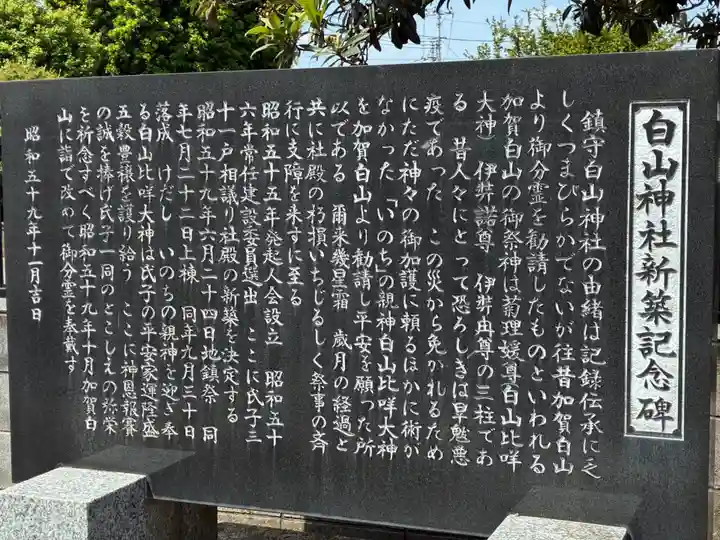 白山神社新築記念碑
鎮守白山神社の由緒は記録伝承に乏
しくつまびらかでないが往昔加賀白山
より御分霊を勧請したものといわれる
加賀白山の御祭神は菊理媛尊白山比咩
大神) 伊弉諾尊 伊弉冉尊の三柱であ
る 昔人々にとって恐ろしきは旱魃悪
疫であった この災から免かれるため
にただ神々の御加護に頼るほかに術が
なかった「いのち」の親神白山比咩大神
を加賀白山より勧請し平安を願った所
以である 爾来幾星霜 歳月の経過と
共に社殿の朽損いちじるしく祭事の斉
行に支障を来すに至る
昭和五十五年発起人会設立 昭和五十
六年常任建設委員選出 ここに氏子三
十一戸相議り社殿の新築を決定する
昭和五十九年六月二十四日地鎮祭 同
年七月二十二日上棟 同年九月三十日
落成 けだし いのちの親神を迎ぎ奉
る白山比咩大神は氏子の平安家運隆盛
五穀豊穣を護り給う ここに神恩報賽
の誠を捧げ氏子一同のとこしえの弥栄
を祈念すべく昭和五十九年十月加賀白
山に詣で改めて御分霊を奉戴す
昭和五十九年十一月吉日